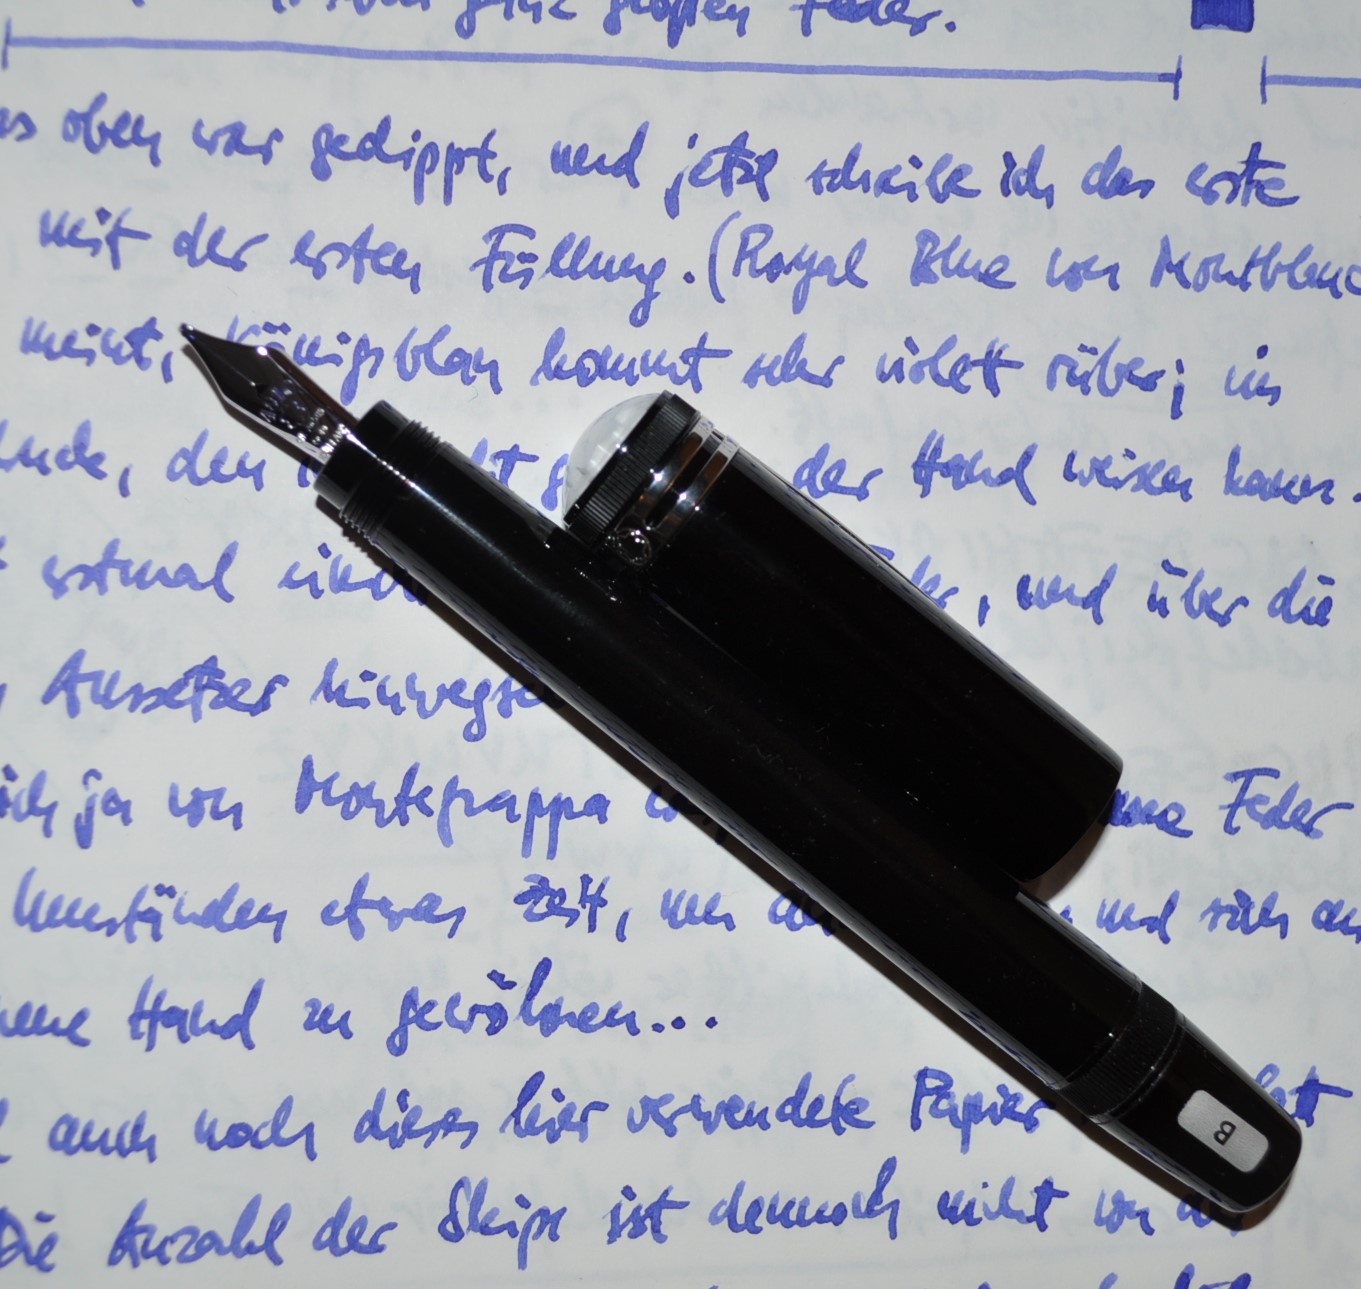 ganz großen Feder.
oben war gedippt, und jetzt schreibe ich das erste
mit der ersten Füllung. (Royal Blue von Montblanc
meint, Königsblau kommt sehr violett rüber; im
den der Hand weisen kann.
erstmal , und über die
Aussetzer hinwegse
ich ja von Montegrappa Feder
Umständen etwas Zeit, um und sich an
Hand zu gewöhnen...
auch noch dieses hier verwendete Papier
Die Anzahl der Skips ist dennoch nicht von
B